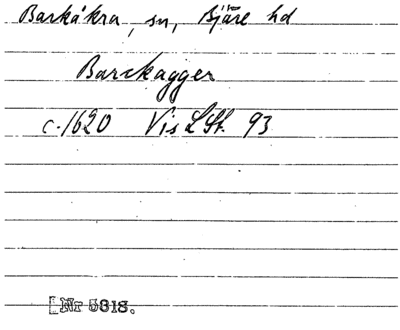 Barkåkra, sn, Bjäre hd
Barckagger
c. 1620 Vis LSt. 93
[Nr 5818.